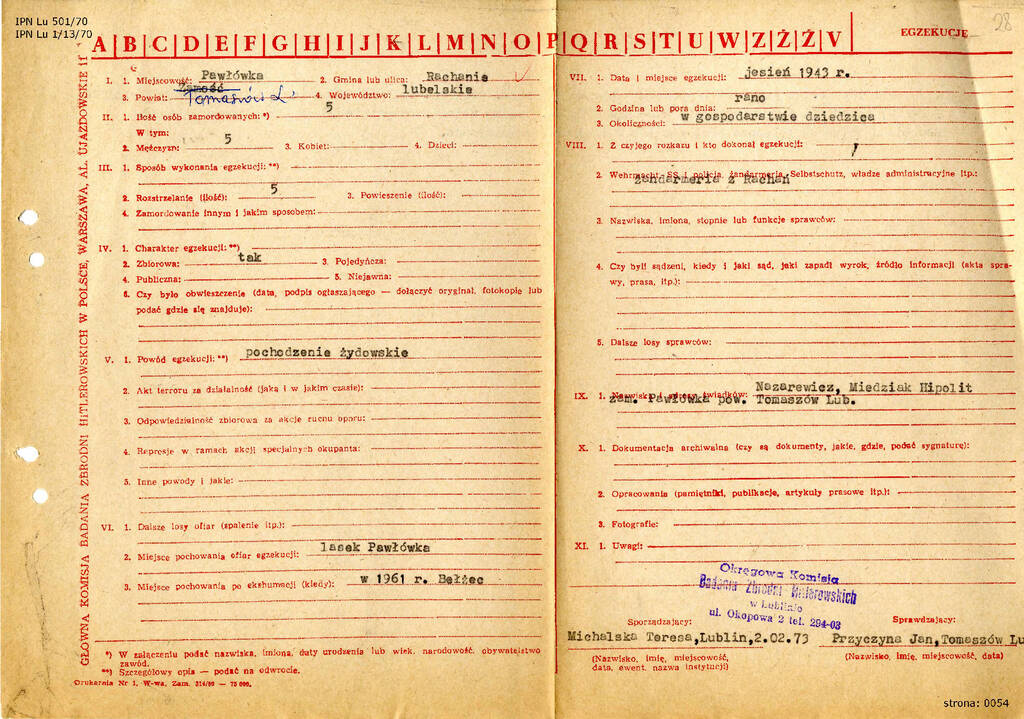 IPN Lu 501/70
IPN Lu 1/13/70
A|B|C|D|E|F|G|H|I|J|K|L|M|N|O|P|Q|R|S|T|U|W|Z|Ż|Ź|V
EGZEKUCJE
28
GŁÓWNA KOMISJA BADANIA ZBRODNI HITLEROWSKICH W POLSCE, WARSZAWA, AL. UJAZDOWSKIE 11
I. 1. Miejscowość: Pawłówka 2. Gmina lub ulica: Rachanie
3. Powiat: Zamość Tomaszów L. 4. Województwo: lubelskie
II. 1. Ilość osób zamordowanych: *) 5
W tym:
2. Mężczyzn: 5 3. Kobiet: 4. Dzieci:
III. 1. Sposób wykonania egzekucji: **)
2. Rozstrzelanie (ilość): 5 3. Powieszenie (ilość):
4. Zamordowanie innym i jakim sposobem:
IV. 1. Charakter egzekucji: **)
2. Zbiorowa: tak 3. Pojedyńcza:
4. Publiczna: 5. Niejawna:
6. Czy było obwieszczenie (data, podpis ogłaszającego — dołączyć oryginał, fotokopię lub
podać gdzie się znajduje):
V. 1. Powód egzekucji: **) pochodzenie żydowskie
2. Akt terroru za działalność (jaką i w jakim czasie):
3. Odpowiedzialność zbiorowa za akcje ruchu oporu:
4. Represje w ramach akcji specjalnych okupanta:
5. Inne powody i jakie:
VI. 1. Dalsze losy ofiar (spalenie itp.):
2. Miejsce pochowania ofiar egzekucji: lasek Pawłówka
3. Miejsce pochowania po ekshumacji (kiedy): w 1961 r. Bełżec
*) W załączeniu podać nazwiska, imiona, daty urodzenia lub wiek, narodowość, obywatelstwo
zawód.
**) Szczegółowy opis — podać na odwrocie.
Drukarnia Nr 1, W-wa, Zam. 314/69 — 75 000.
VII. 1. Data i miejsce egzekucji: jesień 1943 r.
2. Godzina lub pora dnia: rano
3. Okoliczności: w gospodarstwie dziedzica
VIII. 1. Z czyjego rozkazu i kto dokonał egzekucji:
2. Wehrmacht, SS i policja, żandarmeria, Selbstschutz, władze administracyjne itp.:
żandarmeria z Rachań
3. Nazwiska, imiona, stopnie lub funkcje sprawców:
4. Czy byli sądzeni, kiedy i jaki sąd, jaki zapadł wyrok, źródło informacji (akta spra-
wy, prasa, itp.):
5. Dalsze losy sprawców:
IX. 1. Nazwiska i adresy świadków: Nazarewicz, Miedziak Hipolit
zam. Pawłówka pow. Tomaszów Lub.
X. 1. Dokumentacja archiwalna (czy są dokumenty, jakie, gdzie, podać sygnaturę):
2. Opracowania (pamiętniki, publikacje, artykuły prasowe itp.):
3. Fotografie:
XI. 1. Uwagi:
Okręgowa Komisja
Badania Zbrodni Hitlerowskich
w Lublinie
ul. Okopowa 2 tel. 294-03
Sporządzający: Sprawdzający:
Michalska Teresa,Lublin,2.02.73 Przyczyna Jan,Tomaszów Lu
(Nazwisko, imię, miejscowość, (Nazwisko, imię, miejscowość, data)
data, ewent. nazwa instytucji)
strona: 0054